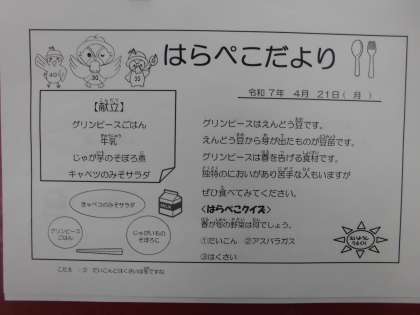 はらぺこだより
令和7年 4月 21日(月)
【献立】
グリンピースごはん
牛乳
じゃが芋のそぼろ煮
キャベツのみそサラダ
グリンピースはえんどう豆です。
えんどう豆から芽が出たものが豆苗です。
グリンピースは春を告げる食材です。
独特のにおいがあり苦手な人もいますが
ぜひ食べてみてください。
<はらぺこクイズ>
春が旬の野菜は何でしょう。
①だいこん ②アスパラガス
③はくさい
キャベツのみそサラダ
グリンピース
ごはん
じゃがいもの
そぼろに
こたえ:② だいこんとはくさいは冬ですね